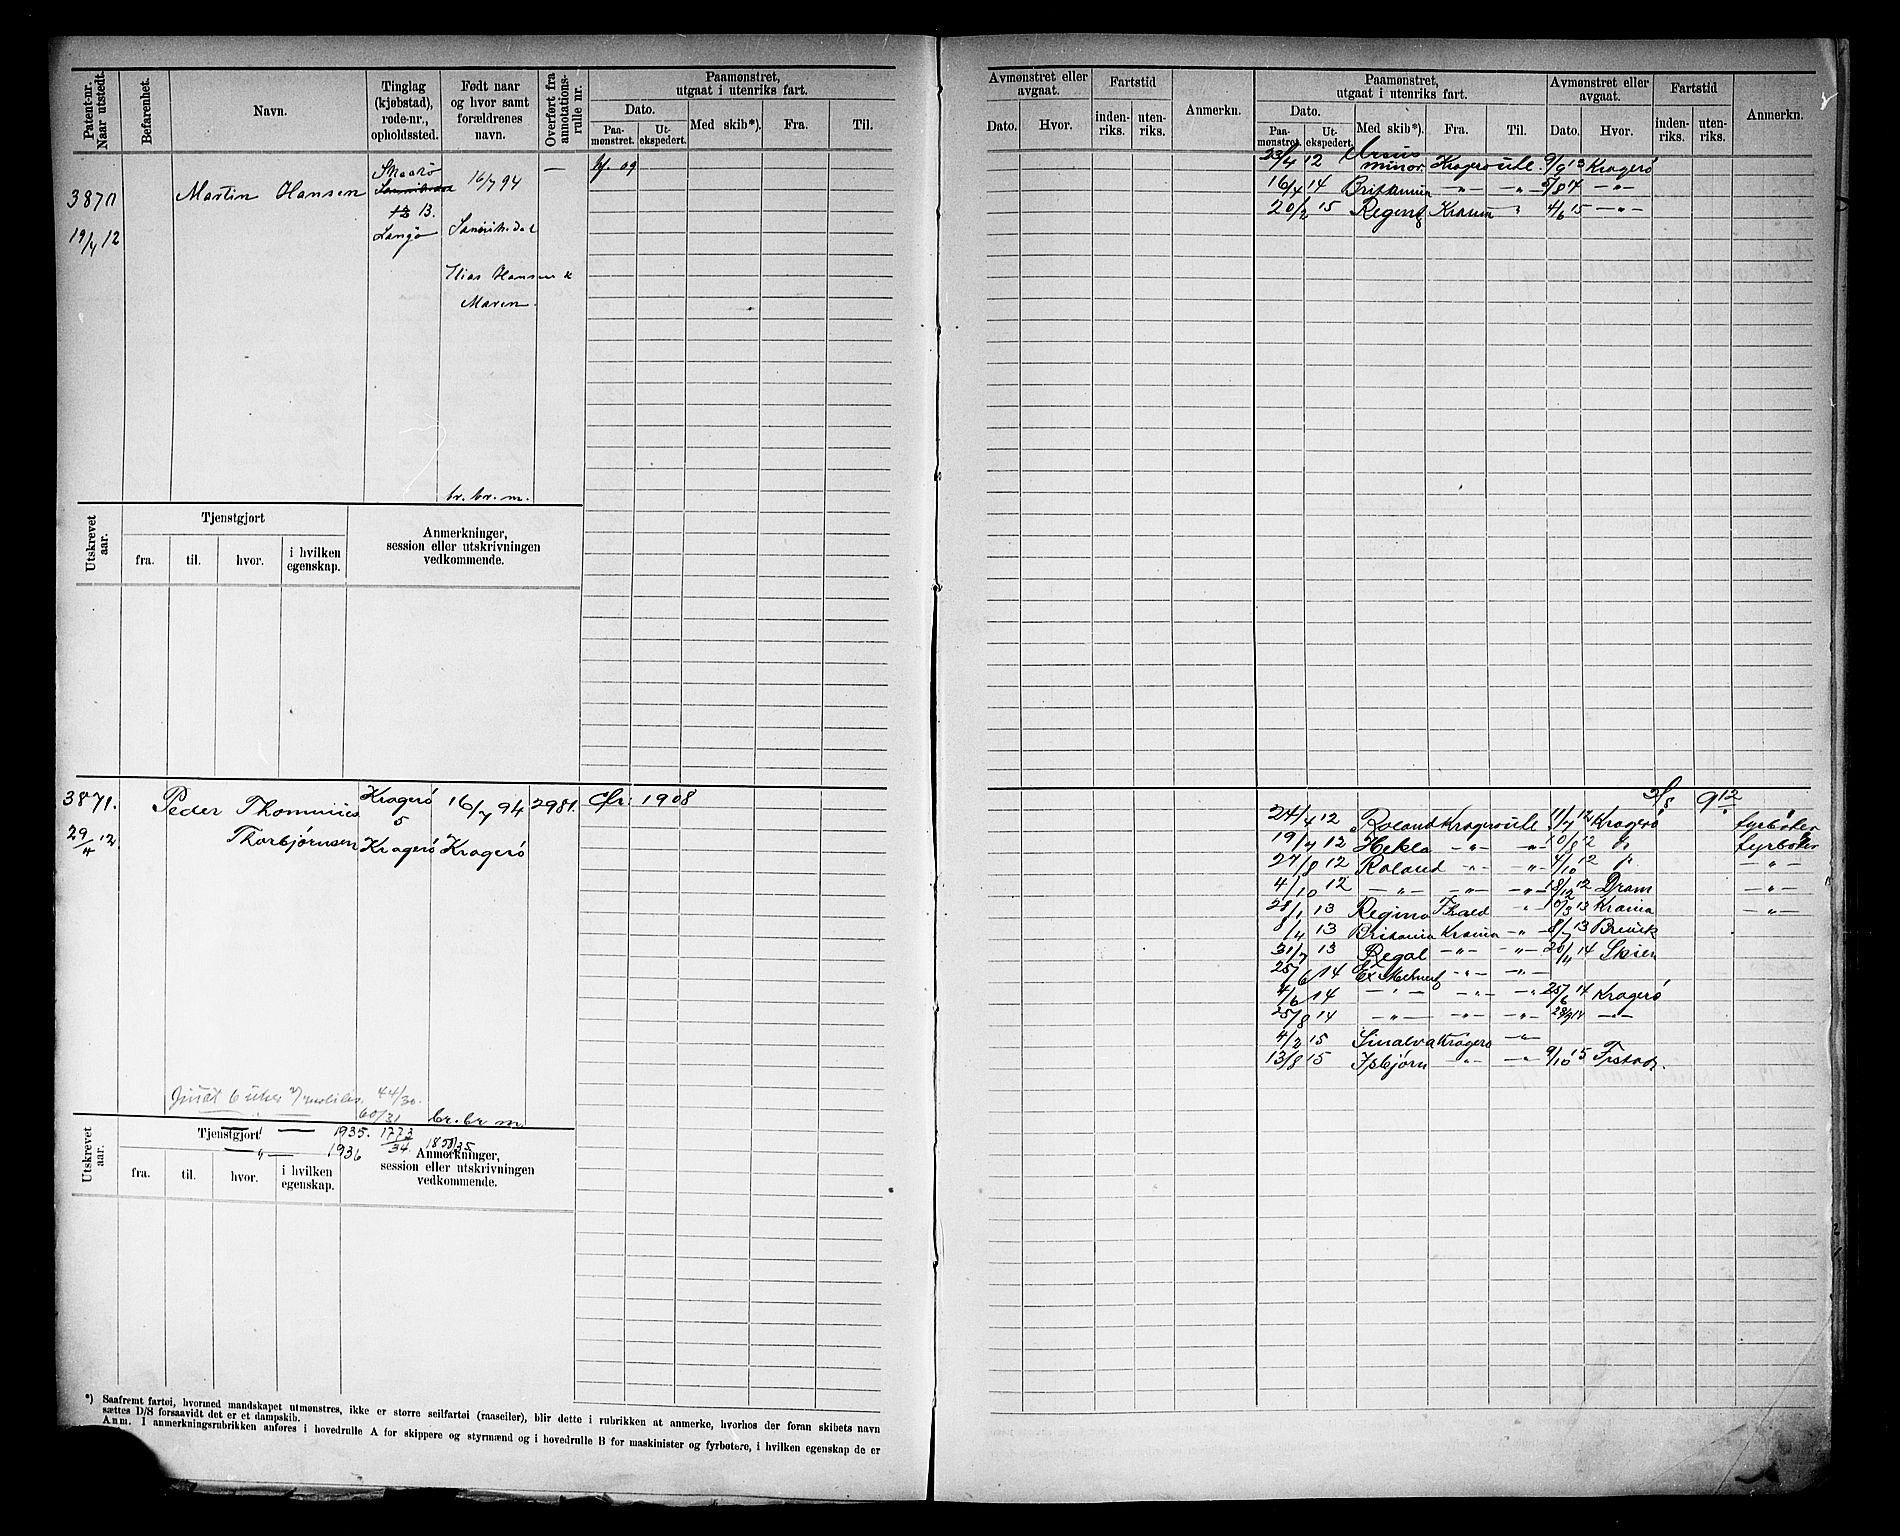 Patent-nr. Naar utstedt.
Befarenhet.
Navn.
Tinglag (kjøbstad), rode-nr., opholdssted.
Født naar og hvor samt forældrenes navn.
Overført fra annotations-rulle nr.
Paamønstret, utgaat i utenriks fart.
Dato.
Paa-mønstret.
Ut-ekspedert.
Med skib*).
Fra.
Til.
Avmønstret eller avgaat.
Dato.
Hvor.
Fartstid
inden-riks.
uten-riks.
Anmerkn.
Paamønstret, utgaat i utenriks fart.
Dato.
Paa-mønstret.
Ut-ekspedert.
Med skib*).
Fra.
Til.
Avmønstret eller avgaat.
Dato.
Hvor.
Fartstid
inden-riks.
uten-riks.
Anmerkn.
3870
19/4 12
Martin Hansen
Skaarø
13.
Langø
16/7 94
Sannikedal
Elias Hansen &
Maren.
br. br. m.
—
09
23/4 12 Ursus minor Kragerø utl. 9/9 13 Kragerø
16/4 14 Brittannia —„— —„— 5/8 14 —„—
20/2 15 Regent Krania „ 4/6 15 —„—
Utskrevet aar.
Tjenstgjort
fra.
til.
hvor.
i hvilken egenskap.
Anmerkninger, session eller utskrivningen vedkommende.
3871.
29/4 12.
Peder Thommius
Thorbjørnsen
Kragerø
5
Kragerø
16/7 94
Kragerø
2981.
1908
9 12
24/4 12 Roland Kragerø utl. 11/7 12 Kragerø fyrbøter
19/7 12 Hekla —„— „ 10/8 12 fyrbøter
27/8 12 Roland „ —„— 4/10 12 —„—
4/10 12 —„— —„— —„— 18/12 12 Dram —„—
28/1 13 Regina Fhald „ 10/3 13 Krania —„—
8/4 13 Britania Krania —„ 8/7 13 Brevik
31/7 13 Regal —„— —„ 20/11 14 Skien
25/6 14 —„— —„—
4/6 14 —„— —„— —„ 25/6 14 Kragerø
25/8 14 —„— —„— —„— 28/9 14 —„—
4/2 15 Kragerø —„—
13/8 15 Isbjørn —„— —„ 9/10 15 Frstad.
44/30.
60/31
br. br m
1935. 1773/34. 1850/35.
—„— 1936
Utskrevet aar.
Tjenstgjort
fra.
til.
hvor.
i hvilken egenskap.
Anmerkninger, session eller utskrivningen vedkommende.
*) Saafremt fartøi, hvormed mandskapet utmønstres, ikke er større seilfartøi (raaseiler), blir dette i rubrikken at anmerke, hvorhos der foran skibets navn
sættes D/S forsaavidt det er et dampskib.
Anm. I anmerkningsrubrikken anføres i hovedrulle A for skippere og styrmænd og i hovedrulle B for maskinister og fyrbøtere, i hvilken egenskap de er